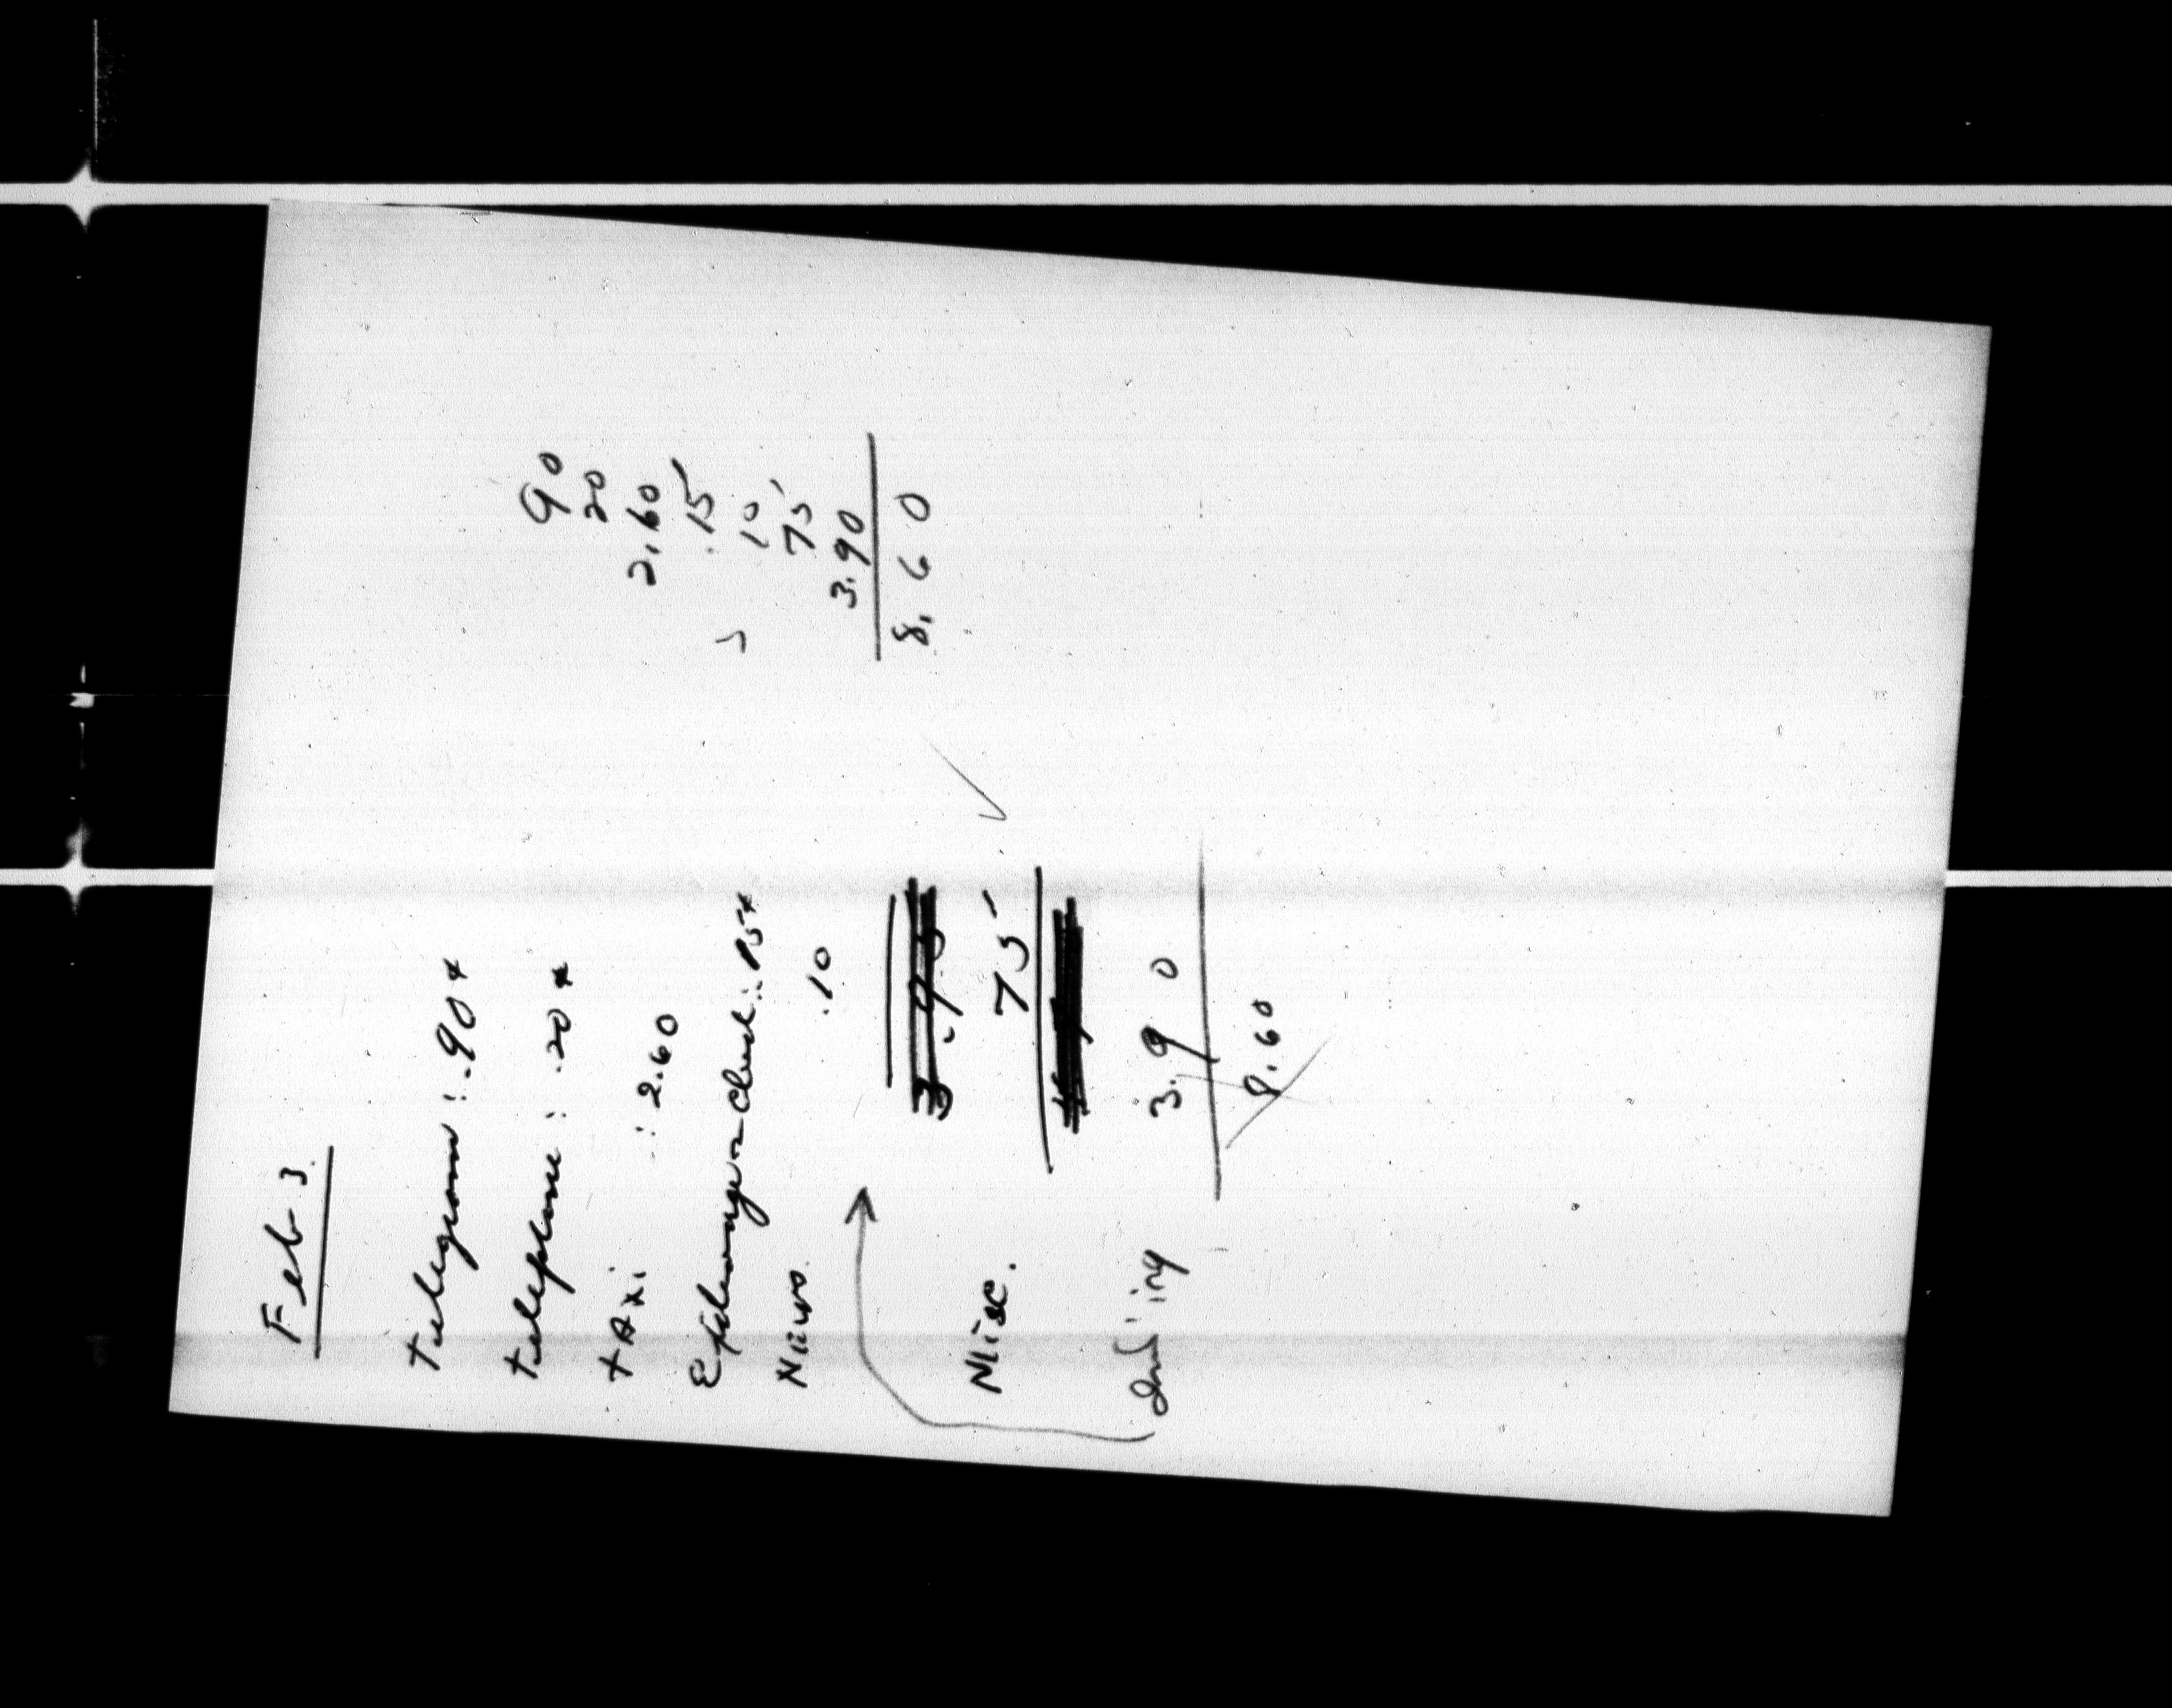 Feb 3
Telegram: .90¢
Telephone: .20¢
TAxi: 2.60
Exchange on Check: .15¢
News. .10
3.95
Misc. 75
3.90
8.60
90
20
2.60
.15
10
75
3.90
8.60